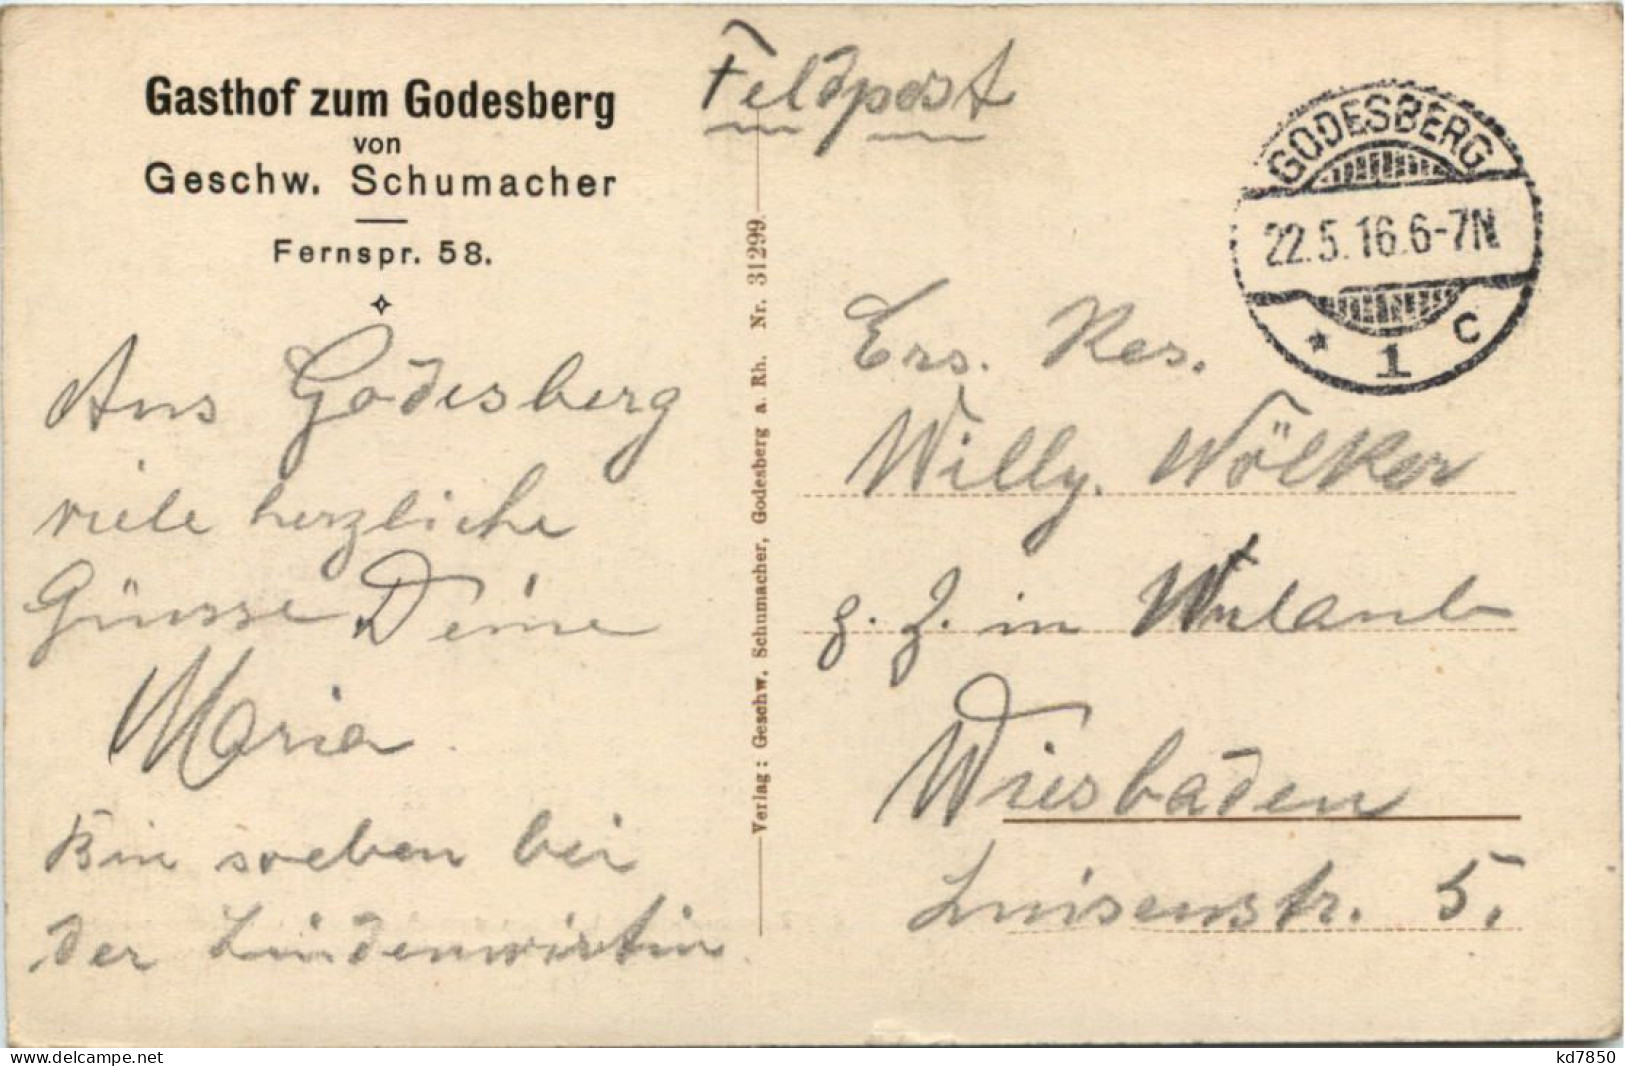 Gasthof zum Godesberg
von
Geschw. Schumacher
Fernspr. 58.
Aus Godesberg
viele herzliche
Grüsse Deine
Maria
Bin soeben bei
der Lindenwirtin
Verlag: Geschw. Schumacher, Godesberg a. Rh. Nr. 31299.
Feldpost
GODESBERG
22.5.16.6-7N
* 1 c
Ers. Res.
Willy. Wölker
z. Z. in Urlaub
Wiesbaden
Luisenstr. 5.
www.delcampe.net
kd7850